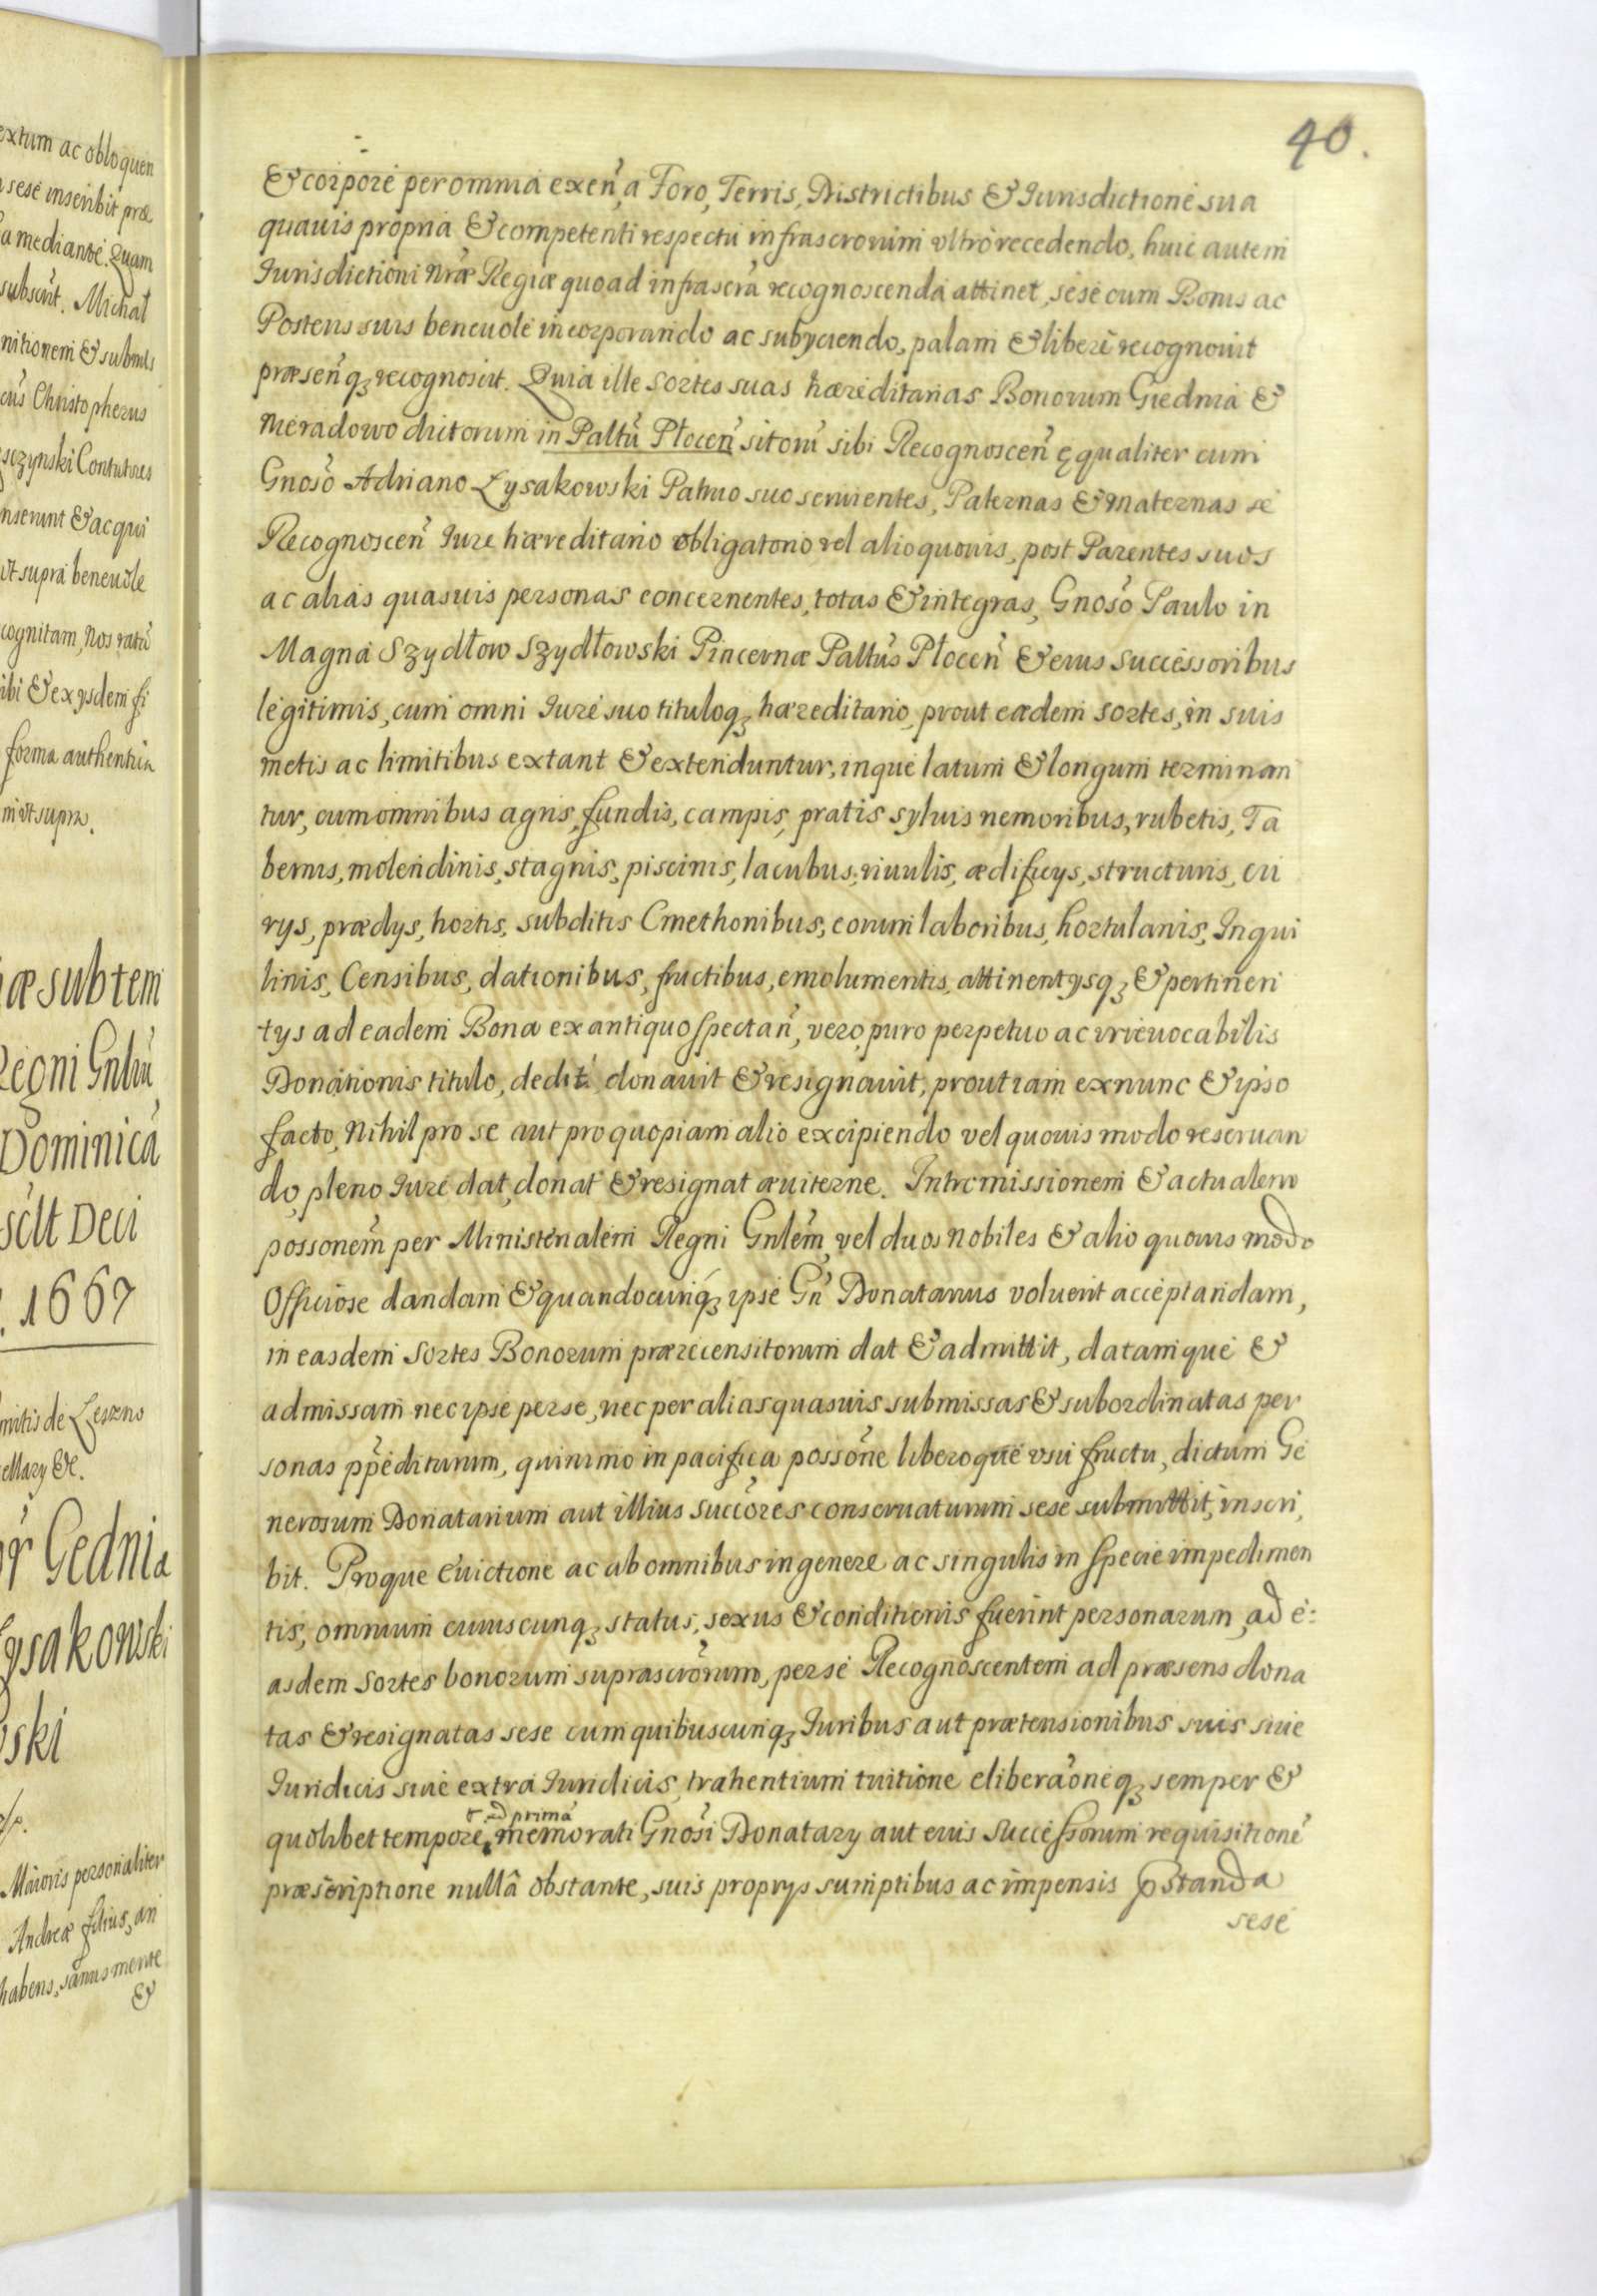 extum ac obloquen
sese inscribit præ
a mediante. Quam
subscrit. Michał
nitionem & submis
cus Christopherus
sczynski Contutores
nserunt & acqui
vt supra beneuole
cognitam, Nos ratu
ibi & exysdem fi
forma authentica
m vt supra.
æ subtem
Regni Gnlm
Dominica
sclt Deci
1667
mitis de Leszno
cellary &c.
Gednia
Łysakowski
ski
Maioris personaliter
Andreæ filius, an
habens, sanus mente
&
40.
& corpore per omnia exeñ, a Foro, Terris, Districtibus & Iurisdictione sua
quauis propria & competenti respectu infrascrorum vltro recedendo, huic autem
Iurisdictioni Nræ Regiæ quoad infrascra recognoscenda attinet, sese cum Bonis ac
Posteris suis beneuole incorporando ac subyciendo, palam & libere recognouit
præseñqȝ recognoscit. Quia ille Sortes suas hæreditarias Bonorum Giednia &
Meradowo dictorum in Paltũ Płoceñ sitorũ sibi Recognosceñ ęqualiter cum
Gnoso Adriano Łysakowski Patruo suo seruientes, Paternas & Maternas se
Recognosceñ Iure hæreditario obligatorio vel alio quouis, post Parentes suos
ac alias quasuis personas concernentes, totas & integras, Gnoso Paulo in
Magna Szydłow Szydłowski Pincernæ Paltus Płoceñ & eius Successoribus
legitimis, cum omni Iure suo tituloqȝ hæreditario, prout eædem sortes, in suis
metis ac limitibus extant & extenduntur, inque latum & longum terminan
tur, cum omnibus agris, fundis, campis, pratis syluis nemoribus, rubetis, Ta
bernis, molendinis, stagnis, piscinis, lacubus, riuulis, ædificys, structuris, cu
rys, prædys, hortis, subditis Cmethonibus, eorum laboribus, hortulanis, Inqui
linis, Censibus, dationibus, fructibus, emolumentis, attinentysqȝ & pertinen
tys ad eadem Bona ex antiquo spectañ, vero, puro perpetuo ac irreuocabilis
Donationis titulo, dedit donauit & resignauit, prout iam exnunc & ipso
facto, Nihil pro se aut pro quopiam alio excipiendo vel quouis modo reseruan
do, pleno Iure dat, donat & resignat æuiterne. Intromissionem & actualem
possonem per Ministerialem Regni Gnlem, vel duos Nobiles & alio quouis modo
Officiose dandam & quandocunqȝ ipse Gñ Donatarius voluerit acceptandam,
in easdem Sortes Bonorum præcensitorum dat & admittit, datamque &
admissam nec ipse per se, nec per alias quasuis submissas & subordinatas per
sonas ppediturum, quinimo in pacifica possone liberoque vsu fructu, dictum Ge
nerosum Donatarium aut illius succores conseruaturum sese submittit, inscri,
bit. Proque Euictione ac ab omnibus in genere ac singulis in specie impedimen
tis, omnium cuiuscunqȝ status, sexus & conditionis fuerint personarum, ad e:
asdem Sortes bonorum suprascrorum, per se Recognoscentem ad præsens dona
tas & resignatas sese cum quibuscunqȝ Iuribus aut prætensionibus suis siue
Iuridicis siue extra Iuridicis, trahentium tuitione eliberaoneqȝ semper &
quolibet tempore, memorati Gnosi Donatary aut eius Successorum requisitione
& ad prima
præscriptione nullâ obstante, suis proprys sumptibus ac impensis pstanda
sese